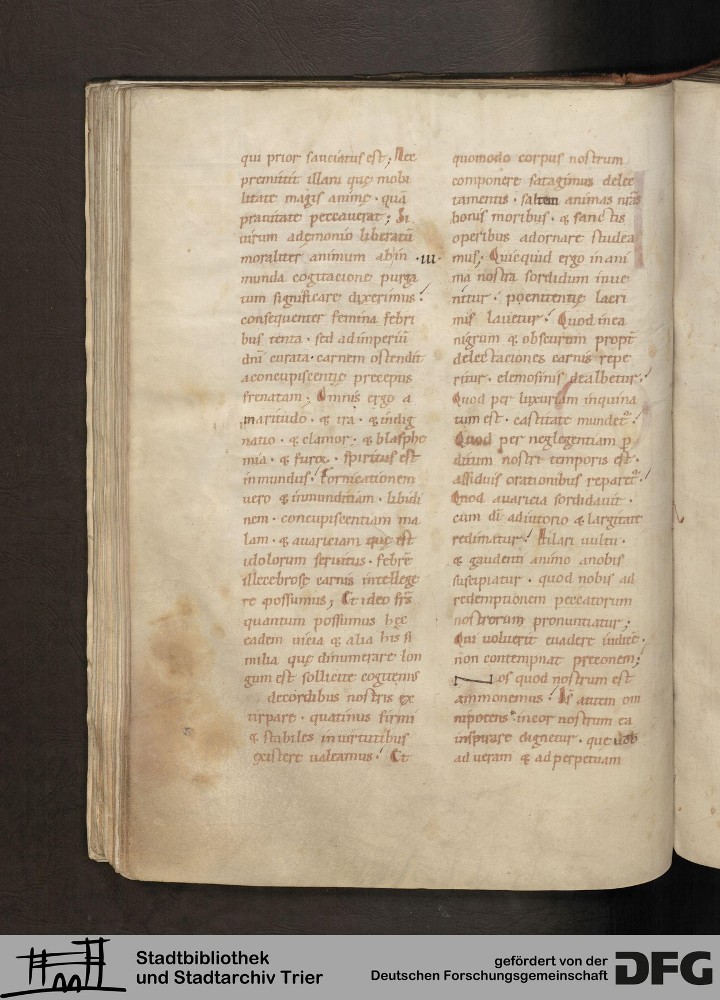 qui prior sauciatus est; Nec
premittit illam quę mobi
litate magis animę · quā
prauitate peccauerat; Si
uirum ademonio liberatū
moraliter animum abin
munda cogitacione purga
tum significare dixerimus!
consequenter femina febri
bus tenta · sed adimperiū
dnī curata · carnem ostendit
aconcupiscentię preceptis
frenatam; Omnis ergo a
maritudo · & ira · & indig
natio · & clamor · & blasphe
mia · & furor · spiritus est
inmundus! Fornicationem
uero & inmunditiam · libidi
nem · concupiscentiam ma
lam · & auariciam que est
idolorum seruitus · febrē
illecebrosę carnis intellege
re possumus; Et ideo frs̄
quantum possumus hęc
eadem uicia & alia his si
milia quę dinumerare lon
gum est sollicite cogitemus
decordibus nostris ex
tirpare · quatinus firmi
& stabiles inuirtutibus
existere ualeamus! Et
·III·
quomodo corpus nostrum
componere satagimus delec
tamentis · saltem animas nrās
bonis moribus · & sanctis
operibus adornare studea
mus; Quicquid ergo inani
ma nostra sordidum inue
nitur! poenitentię lacri
mis lauetur! Quod inea
nigrum & obscurum propt̄
delectaciones carnis repe
ritur · elemosinis dealbetur!
Quod per luxurium inquina
tum est · castitate mundet!
Quod per neglegentiam p
ditum nostri temporis est ·
assiduis orationibus reparet!
Quod auaricia sordidauit ·
cum dī adiutorio & largitate
redimatur! Hilari uultu ·
& gaudenti animo anobis
suscipiatur · quod nobis ad
redemptionem peccatorum
nostrorum pronuntiatur;
Qui uoluerit euadere iudicē ·
non contempnat preconem;
Nos quod nostrum est
ammonemus! Is autem om
nipotens incor nostrum ea
inspirare dignetur · que uob
ad ueram & ad perpetuam
Stadtbibliothek
und Stadtarchiv Trier
gefördert von der
Deutschen Forschungsgemeinschaft
DFG